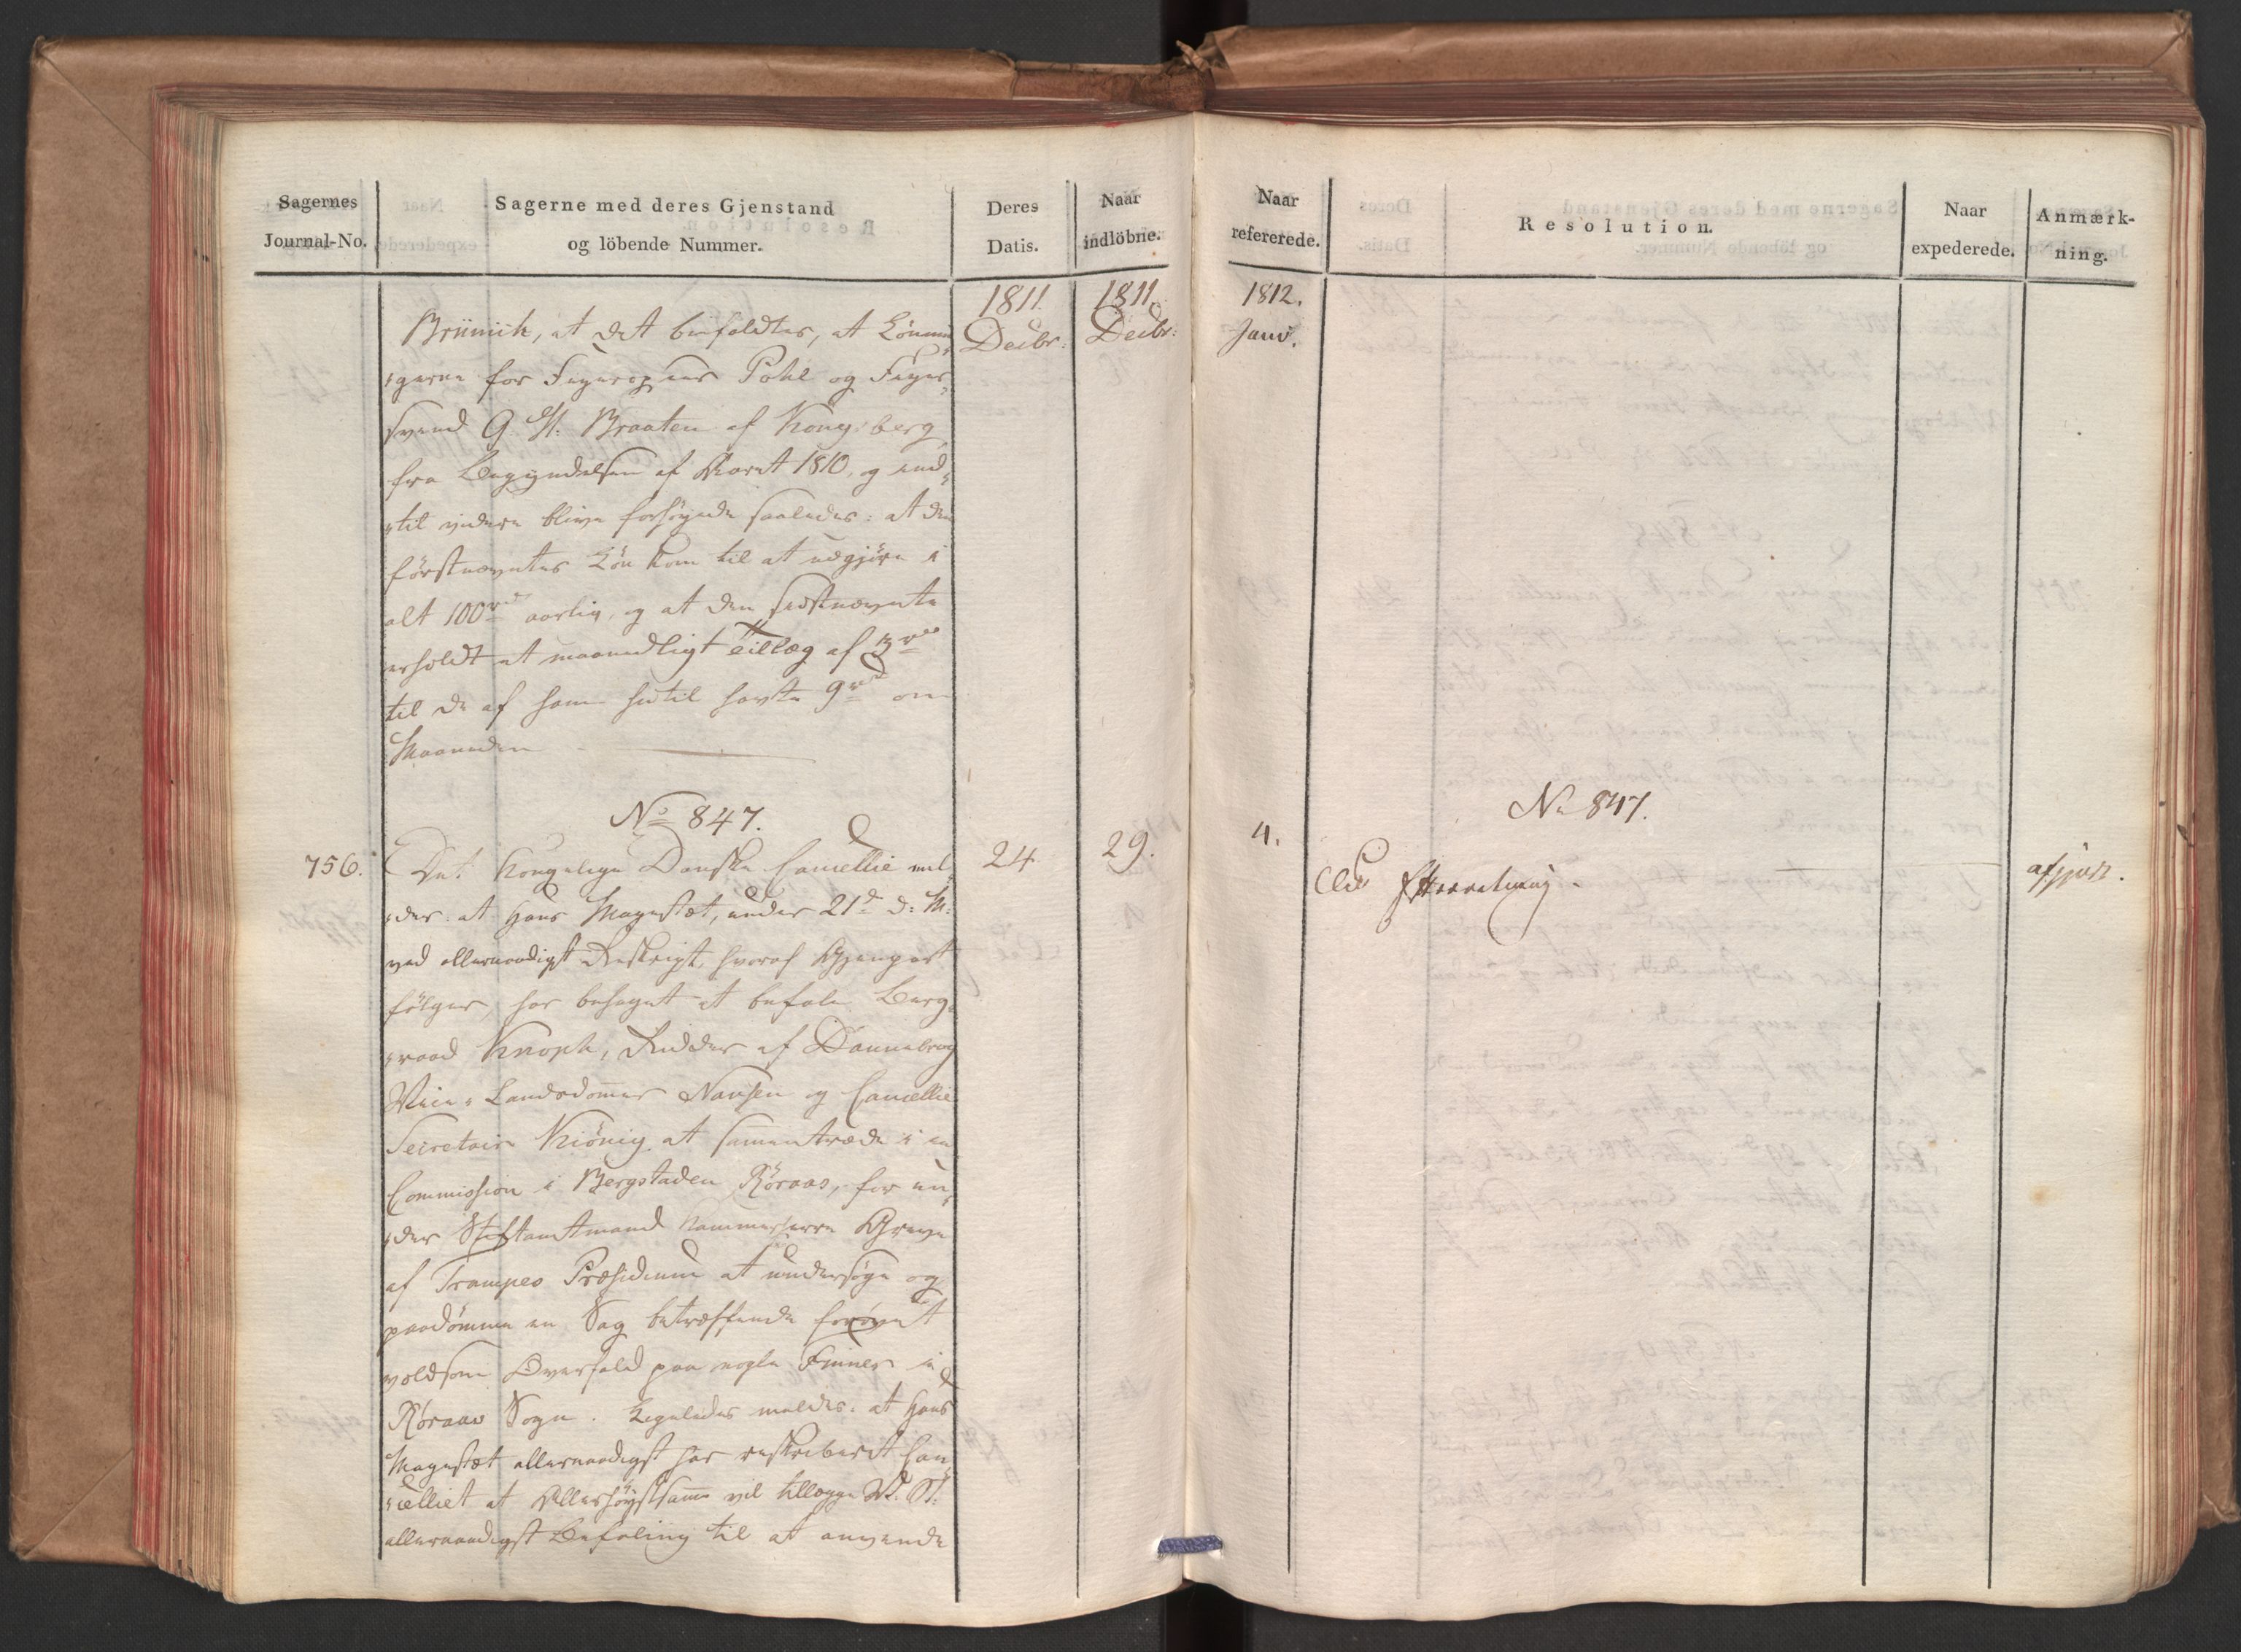 Sagernes
Journal-No.
Sagerne med deres Gjenstand
og löbende Nummer.
Deres
Datis.
Naar
indlöbne.
1811.
Decbr:
1811.
Decbr:
Brünnich, at det befaldtes, at Lönnin
gerne for
Pohl og
svend G. H. Braaten af Kongsberg
fra Begyndelsen af Aaret 1810, og ind
til videre blive forhöyede saaledes: at den
förstnævntes Lön kom til at udgjöre i
alt 100 rd aarlig, og at den sidstnævnte
erholdt et maanedligt Tillæg af 3 rd
til de af ham hidtil havte 9 rd om
Maaneden
No 847.
756.
24.
29.
Det Kongelige Danske Cancellie mel
der: at Hans Majestæt, under 21d d: M:
ved allernaadigst Reskript, hvoraf Gjenpart
fölger, har behaget at befale Berg
raad Knoph, Ridder af Dannebrog
Vice-Landsdommer Nansen og Cancellie
Secretair Kiönig at sammentræde i en
Commission i Bergstaden Röraas, for un
der Stiftamtmand Kammerherre Greve
af Trampes Præsidium at undersöge og
paadömme en Sag betræffende forövet
voldsom Overfald paa nogle Finner i
Röraas Sogn. Ligeledes meldes: at Hans
Majestæt allernaadigst har reskriberet Can
celliet at Allerhöystsamme vil tillægge
allernaadigst Befaling til at anvende
Naar
refererede.
Resolution.
Naar
expederede.
Anmærk-
ning.
1812.
Janv.
No 847.
4.
Efterretning.
afgjort.